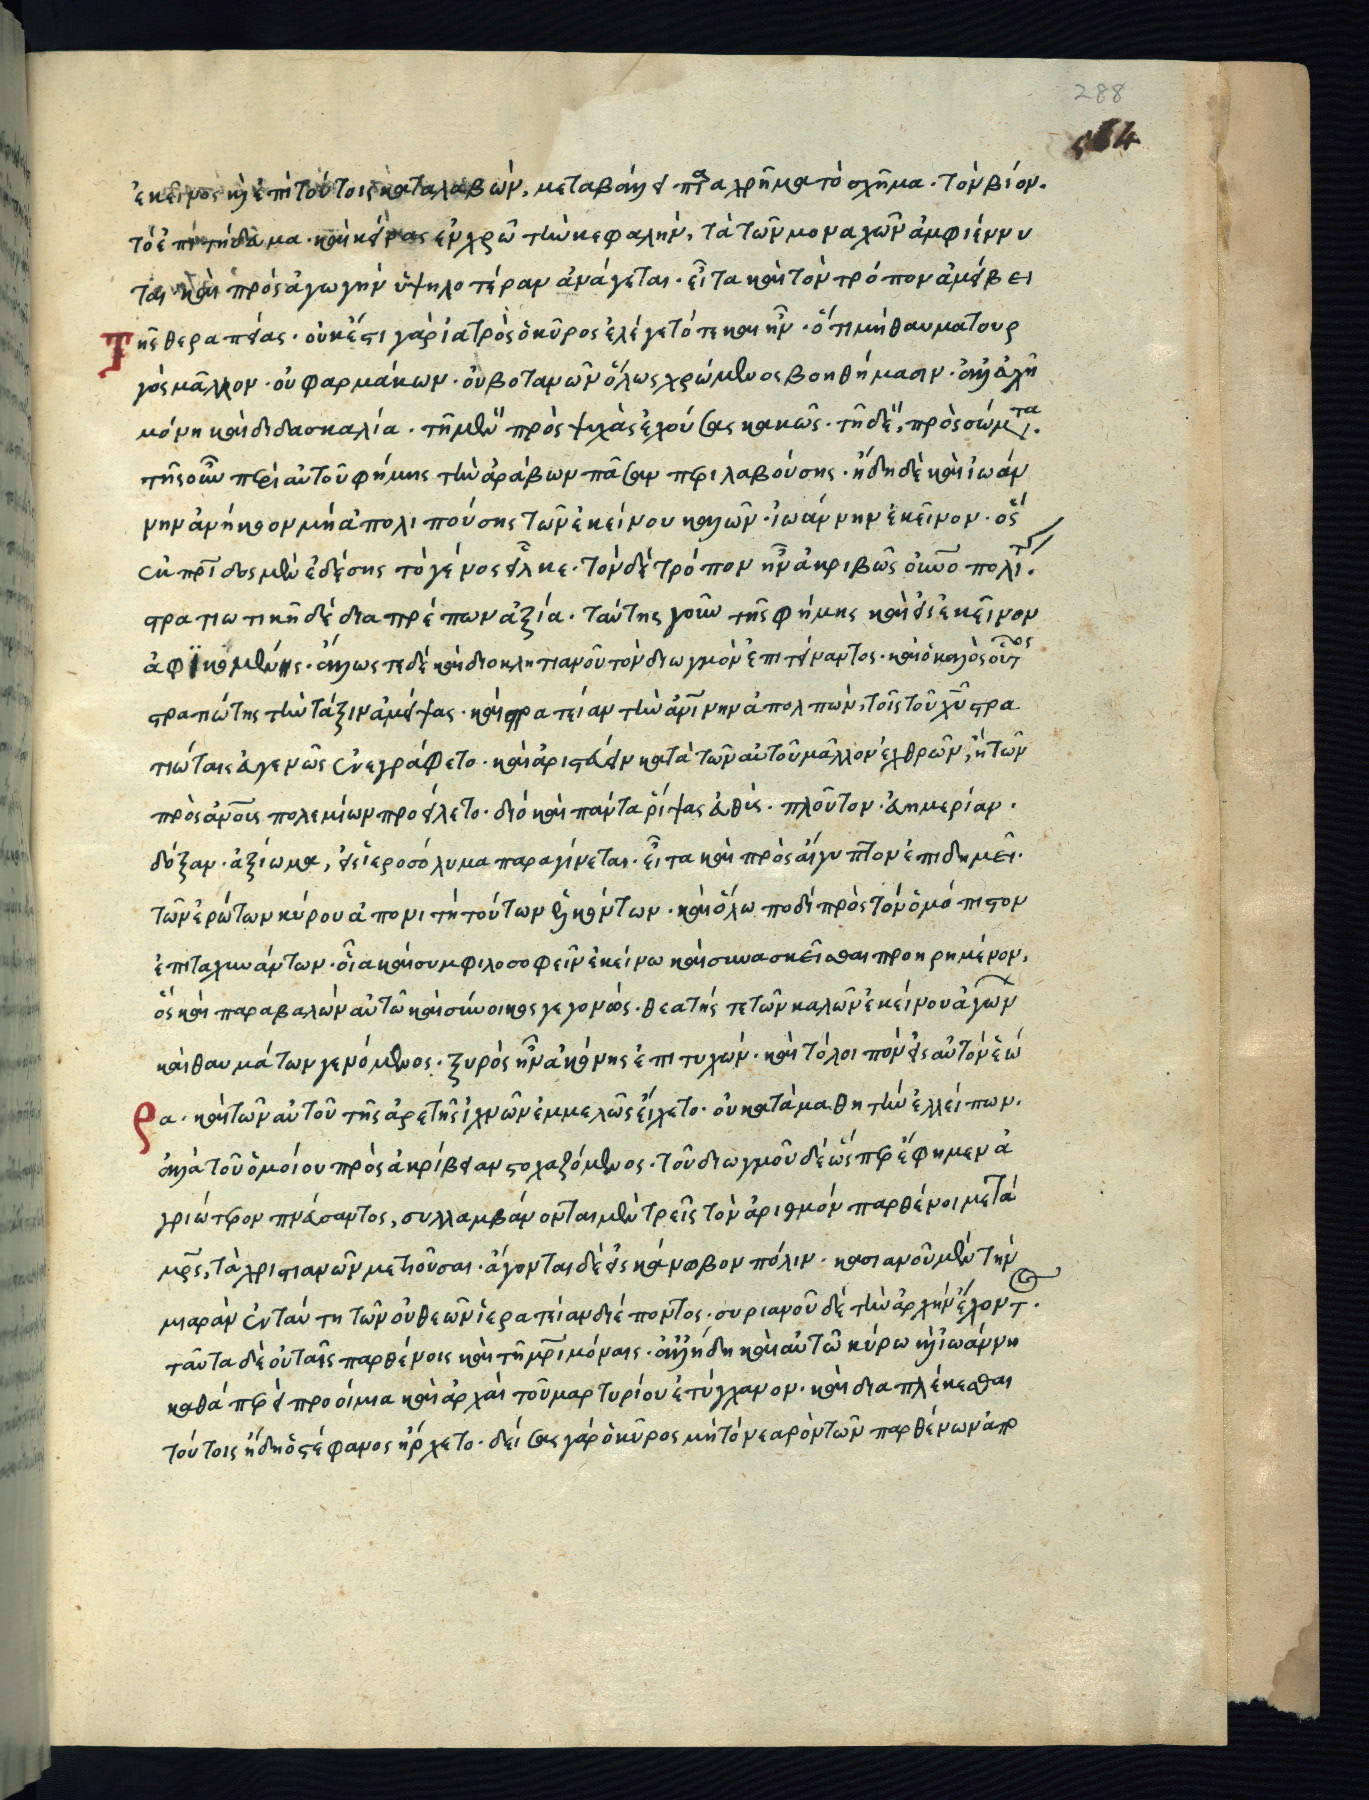 288
ἐκεῖνος κ ἐπὶ τούτοις καταλαβὼν, μεταβάλλει πρα χρῆμα τὸ σχῆμα. τὸν βίον.
τὸ ἐπιτήδευμα. καὶ κείρας ἐν χρῶ τὴν κεφαλήν, τὰ τῶν μοναχῶν ἀμφιέννυ
ται καὶ πρὸς ἀγωγὴν ὑψηλοτέραν ἀνάγεται. εἶτα καὶ τὸν τρόπον ἀμείβει
τῆς θεραπείας. οὐκέτι γὰρ ἰατρὸς ὁ κῦρος ἐλέγετό τε καὶ ἦν. ὅτι μὴ θαυματουρ
γὸς μᾶλλον. οὐ φαρμάκων. οὐ βοτανῶν ὅλως χρώμενος βοηθήμασιν. ἀλλ' εὐχῆ
μόνη καὶ διδασκαλία. τῆ μὲν πρὸς ψυχὰς ἐχούσας κακῶς. τῆ δὲ, πρὸς σώματα.
τῆς οὖν περὶ αὐτοῦ φήμης τὴν ἀράβων πᾶσαν περιλαβούσης. ἤδη δὲ καὶ ἰωάν
νην ἀνήκοον μὴ ἀπολιπούσης τῶν ἐκείνου καλῶν. ἰωάννην ἐκεῖνον. ὃς
ἐκ πρίδος μὲν ἐδέσης τὸ γένος εἷλκε. τὸν δὲ τρόπον ἦν ἀκριβῶς οὐνο πολίτης.
στρατιωτικῆ δὲ διαπρέπων ἀξία. ταύτης γοῦν τῆς φήμης καὶ εἰς ἐκεῖνον
ἀφικομένης. ἄλλως τε δὲ καὶ διοκλητιανοῦ τὸν διωγμὸν ἐπιτείναντος. καὶ ὁ καλὸς οὗτος
στρατιώτης τὴν τάξιν ἀμείψας. καὶ στρατείαν τὴν ἀνίνην ἀπολιπών, τοῖς τοῦ χῦ στρα
τιώταις εὐγενῶς ἐνεγράφετο. καὶ ἀριστεύειν κατὰ τῶν αὐτοῦ μᾶλλον ἐχθρῶν, ἢ τῶν
πρὸς ἀνους πολεμίων προείλετο. διὸ καὶ πάντα ῥίψας εὐθὺς. πλοῦτον. εὐημερίαν.
δόξαν. ἀξίωμα, εἰς ἱεροσόλυμα παραγίνεται. εἶτα καὶ πρὸς αἴγυπτον ἐπιδημεῖ.
τῶν ἐρώτων κύρου ἀπονιτὴ τούτων ἑλκόντων. καὶ ὅλω ποδὶ πρὸς τὸν ὁμόπιστον
ἐπιταχυνάντων. οἷα καὶ συμφιλοσοφεῖν ἐκείνω καὶ συνασκεῖσθαι προηρημένον.
ὃς καὶ παραβαλὼν αὐτῶ καὶ σύνοικος γεγονὼς. θεατής τε τῶν καλῶν ἐκείνου ἀγώνων
καὶ θαυμάτων γενόμενος. ξυρὸς ἦν ἀκόνης ἐπιτυχών. καὶ τὸ λοιπὸν εἰς αὐτὸν ἑώ
ρα. καὶ τῶν αὐτοῦ τῆς ἀρετῆς ἰχνῶν ἐμμελῶς εἴχετο. οὐ κατὰ μαθητὴν ἐλλείπων.
ἀλλὰ τοῦ ὁμοίου πρὸς ἀκρίβειαν στοχαζόμενος. τοῦ διωγμοῦ δὲ ὥσπερ ἔφημεν ἀ
γριώτερον πνεύσαντος, συλλαμβάνονται μὲν τρεῖς τὸν ἀριθμὸν παρθένοι μετὰ
μρς, τὰ χριστιανῶν μετιοῦσαι. ἄγονται δὲ εἰς κάνωβον πόλιν. κασιανοῦ μὲν τὴν
μιαρὰν ἐνταύτη τῶν οὐ θεῶν ἱερατείαν διέποντος. συριανοῦ δὲ τὴν ἀρχὴν ἔχοντος.
ταῦτα δὲ οὐ ταῖς παρθένοις καὶ τῆ μρὶ μόναις. ἀλλ' ἤδη καὶ αὐτῶ κύρω κ ἰωάννη
καθάπερ εἰ προοίμια καὶ ἀρχαὶ τοῦ μαρτυρίου ἐτύγχανον. καὶ διαπλέκεσθαι
τούτοις ἤδη ὁ στέφανος ἤρχετο. δείσας γὰρ ὁ κῦρος μὴ τὸ νεαρὸν τῶν παρθένων ἀπρ